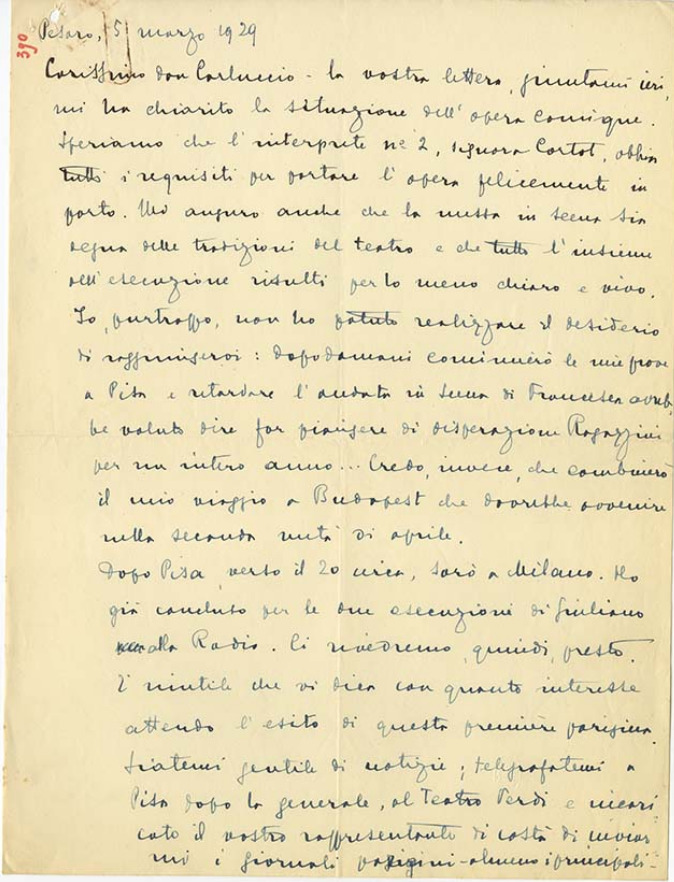 390
Pesaro, 5 marzo 1929
Carissimo don Carluccio - la vostra lettera, giuntami ieri,
mi ha chiarito la situazione dell'opera comique.
Speriamo che l'interprete nº 2, signora Cortot, abbia
tutti i requisiti per portare l'opera felicemente in
porto. Mi auguro anche che la messa in scena sia
degna delle tradizioni del teatro e che tutto l'insieme
dell'esecuzione risulti per lo meno chiaro e vivo.
Io, purtroppo, non ho potuto realizzare il desiderio
di raggiungervi: dopodomani comincerò le mie prove
a Pisa e ritardare l'andata in scena di Francesca avreb,
be voluto dire far piangere di disperazione Ragazzini
per un intero anno... Credo, invece, che combinerò
il mio viaggio a Budapest che dovrebbe avvenire
nella seconda metà di aprile.
Dopo Pisa, verso il 20 circa, sarò a Milano. Ho
già concluso per le due esecuzioni di Giuliano
alla Radio. Ci rivedremo, quindi, presto.
È inutile che vi dica con quanto interesse
attendo l'esito di questa première parigina.
Siatemi gentile di notizie; telegrafatemi a
Pisa dopo la generale, al Teatro Verdi e incari
cate il vostro rappresentante di costà di inviar
mi i giornali parigini - almeno i principali -